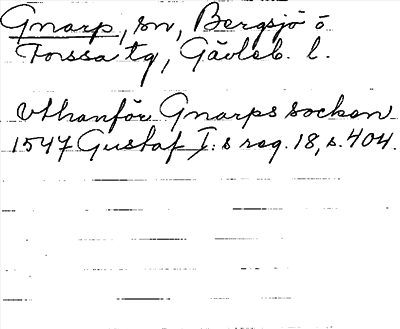 Gnarp, sn, Bergsjö o
Forssa tg, Gävleb. l.
vthanför Gnarps socken
1547 Gustaf I:s reg. 18, s. 404.